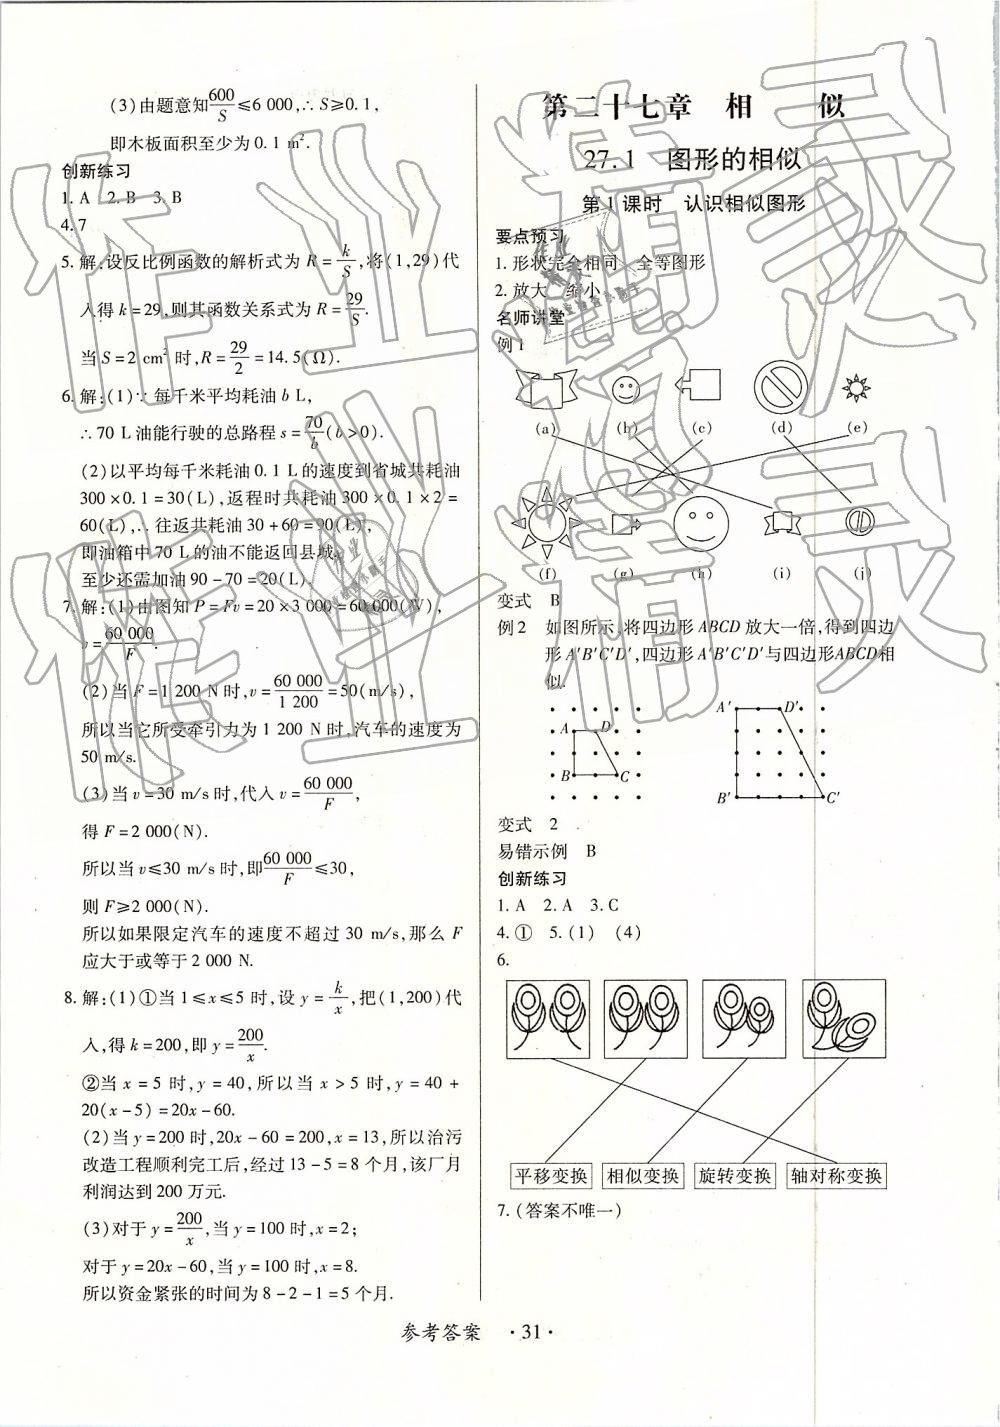 (3)由题意知600/S≤6 000,∴S≥0.1,
即木板面积至少为0.1 m².
创新练习
1. A 2. B 3. B
4. 7
5. 解:设反比例函数的解析式为R=k/S,将(1,29)代
入得k=29,则其函数关系式为R=29/S.
当S=2 cm²时,R=29/2=14.5(Ω).
6. 解:(1)∵每千米平均耗油b L,
∴70 L油能行驶的总路程s=70/b(b>0).
(2)以平均每千米耗油0.1 L的速度到省城共耗油
300×0.1=30(L),返程时共耗油300×0.1×2=
60(L),∴往返共耗油30+60=90(L),
即油箱中70 L的油不能返回县城,
至少还需加油90-70=20(L).
7. 解:(1)由图知P=Fv=20×3 000=60 000(W),
v=60 000/F.
(2)当F=1 200 N时,v=60 000/1 200=50(m/s),
所以当它所受牵引力为1 200 N时,汽车的速度为
50 m/s.
(3)当v=30 m/s时,代入v=60 000/F,
得F=2 000(N).
所以当v≤30 m/s时,即60 000/F≤30,
则F≥2 000(N).
所以如果限定汽车的速度不超过30 m/s,那么F
应大于或等于2 000 N.
8. 解:(1)①当1≤x≤5时,设y=k/x,把(1,200)代
入,得k=200,即y=200/x.
②当x=5时,y=40,所以当x>5时,y=40+
20(x-5)=20x-60.
(2)当y=200时,20x-60=200,x=13,所以治污
改造工程顺利完工后,经过13-5=8个月,该厂月
利润达到200万元.
(3)对于y=200/x,当y=100时,x=2;
对于y=20x-60,当y=100时,x=8.
所以资金紧张的时间为8-2-1=5个月.
第二十七章 相 似
27.1 图形的相似
第1课时 认识相似图形
要点预习
1. 形状完全相同 全等图形
2. 放大 缩小
名师讲堂
例1
(a) (b) (c) (d) (e)
(f) (g) (h) (i) (j)
变式 B
例2 如图所示,将四边形ABCD放大一倍,得到四边
形A′B′C′D′,四边形A′B′C′D′与四边形ABCD相
似.
A′ D′
A D
B C
B′ C′
变式 2
易错示例 B
创新练习
1. A 2. A 3. C
4. ① 5. (1) (4)
6.
平移变换 相似变换 旋转变换 轴对称变换
7. (答案不唯一)
参考答案 ·31·
作业精灵
作业精灵